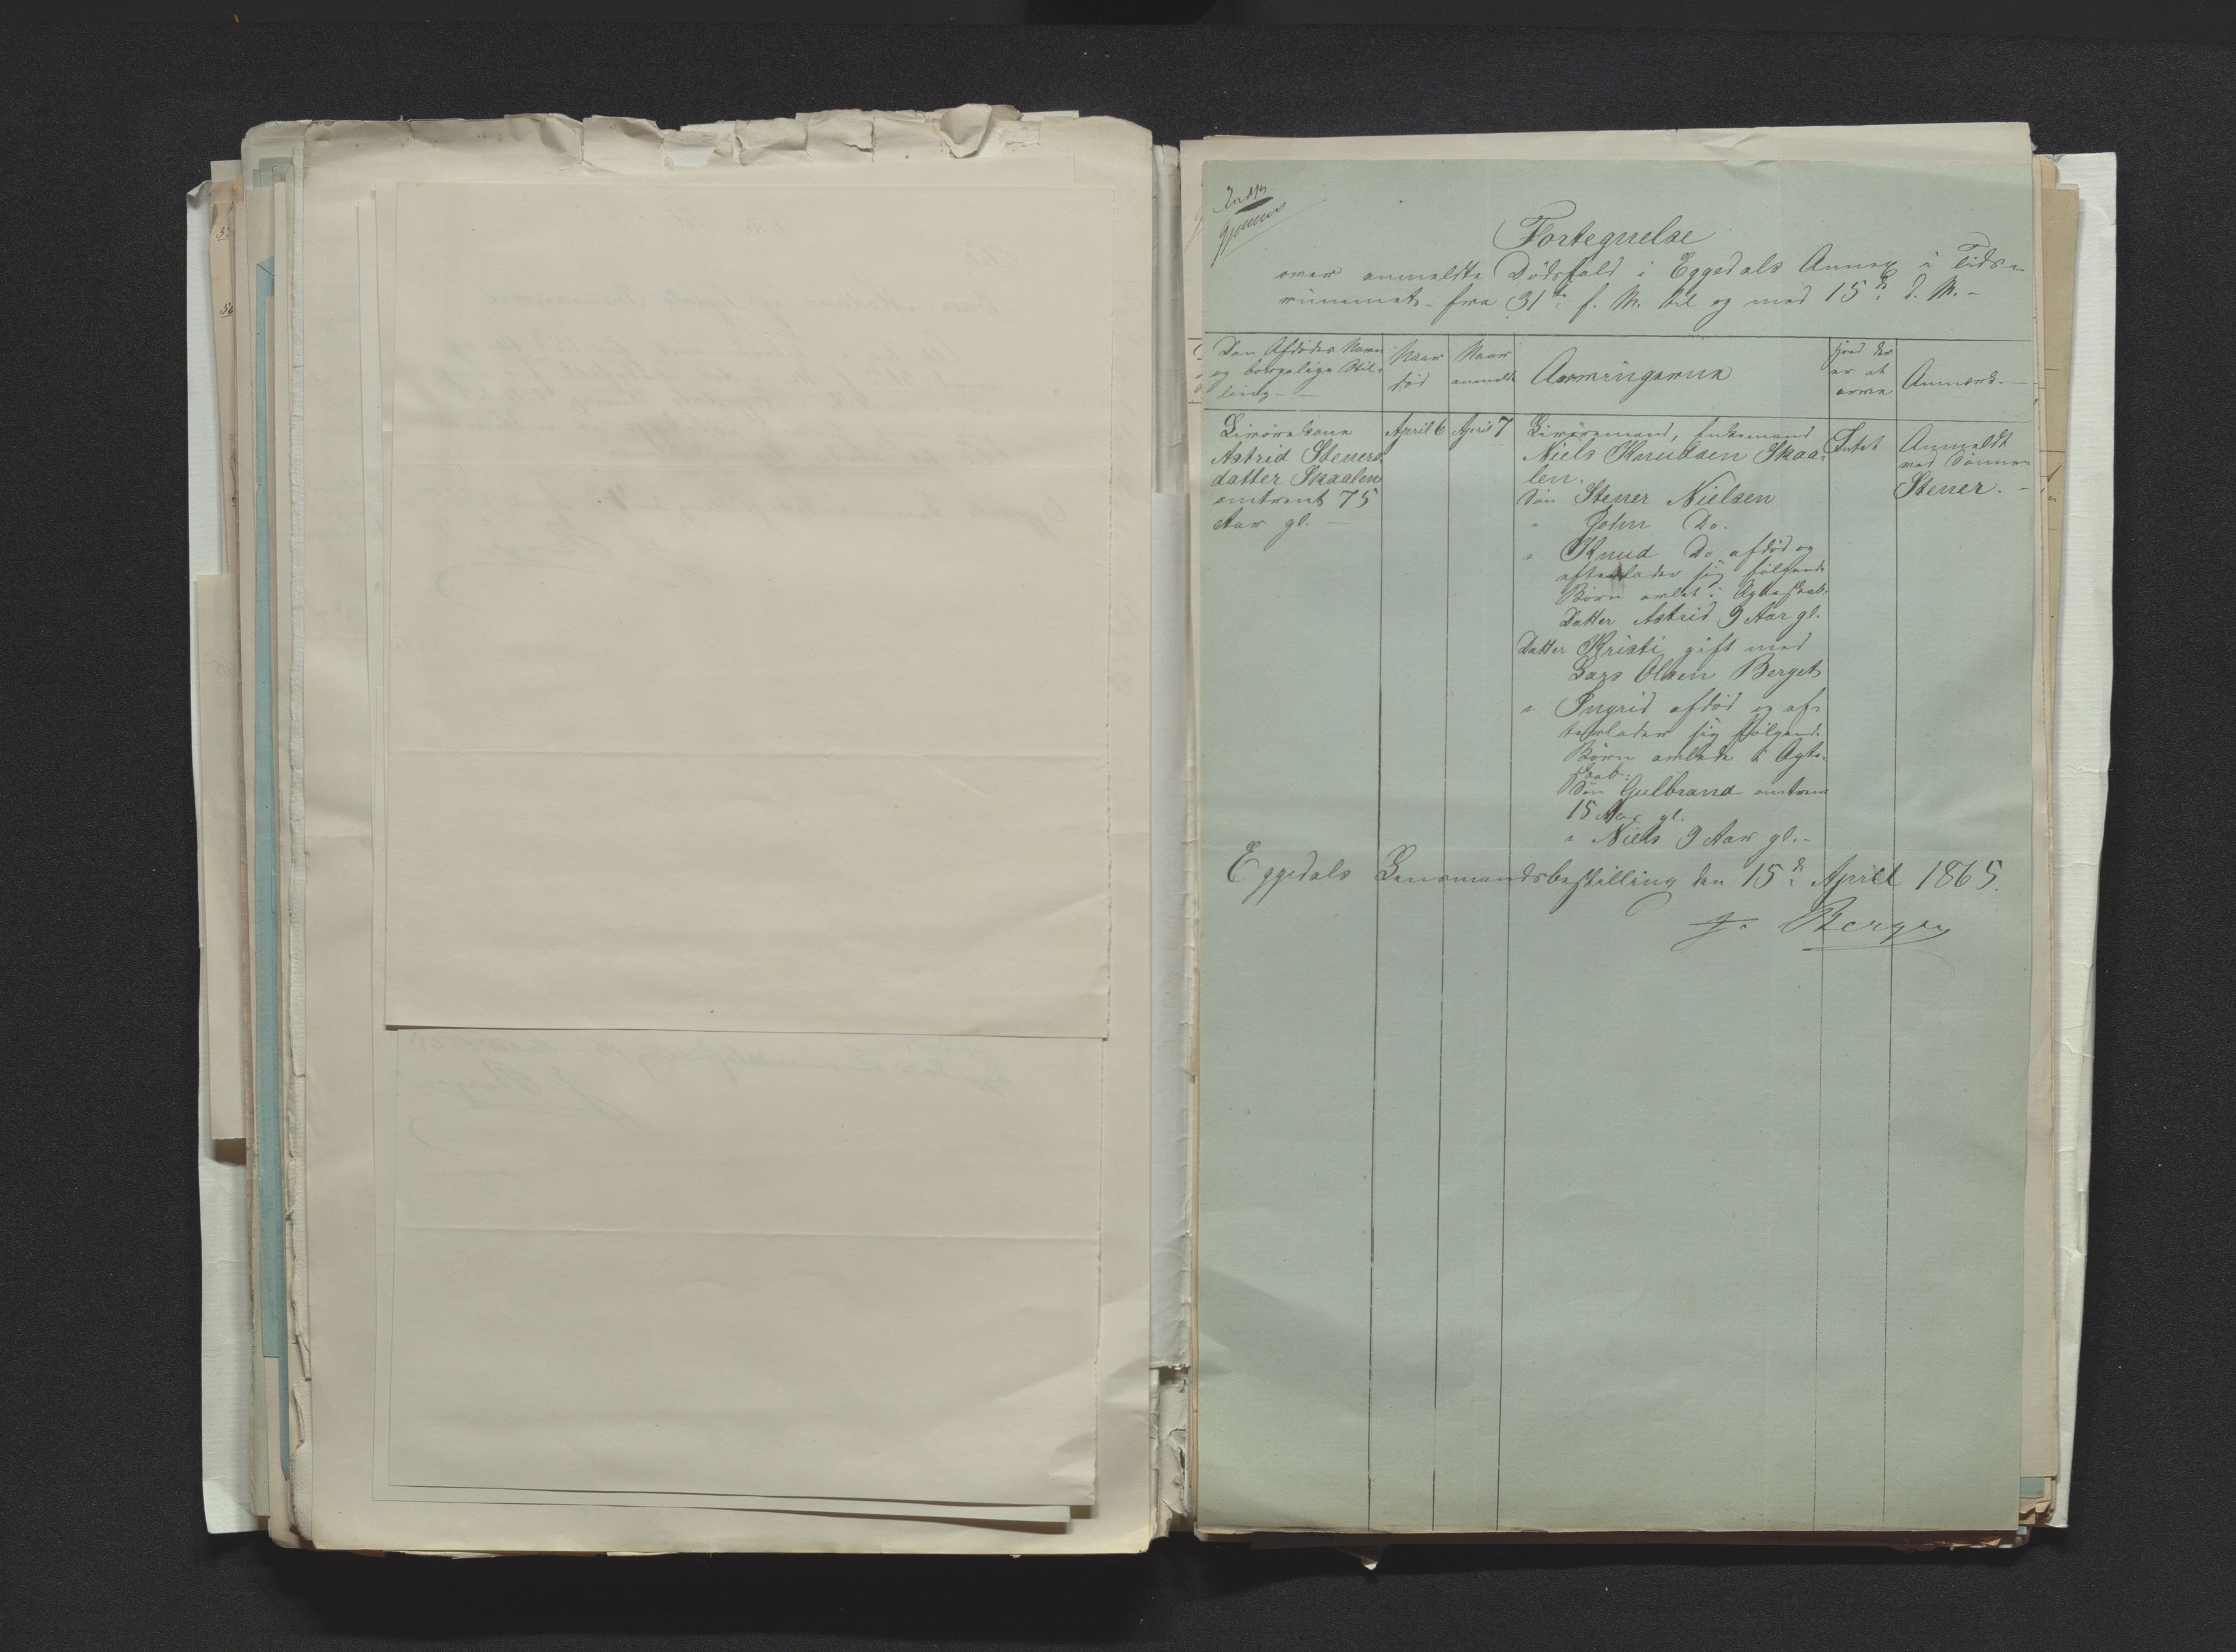 Fortegnelse
over anmeldte Dödsfald i Eggedals Annex i Tids-
rummet fra 31te f. M. til og med 15de d. M. -
Den Afdödes Navn
og borgelige Stil-
ling -
Naar
död
Naar
anmeldt
Arvingerne
Hvad der
er at
arve
Anmærk. -
Livörekone
Astrid Steners
datter Skaalen
omtrent 75
Aar gl. -
April 6
April 7
Livöremand, Enkemand
Niels Knudsen Skaa-
len.
Sön Stener Nielsen
" John Do.
" Knud Do afdöd og
efterlader sig fölgende
Börn avlet i Ægteskab:
Datter Astrid 9 Aar gl.
Datter Kristi gift med
Lars Olsen Berget
" Ingrid afdöd og ef-
terlader sig fölgende
Börn avlede i Ægte-
skab:
Sön Gulbrand omtrent
15 Aar gl.
" Niels 9 Aar gl. -
Intet
Anmeldt
med Sönnen
Stener. -
Eggedals Lensmandsbestilling den 15de April 1865.
J. Berger